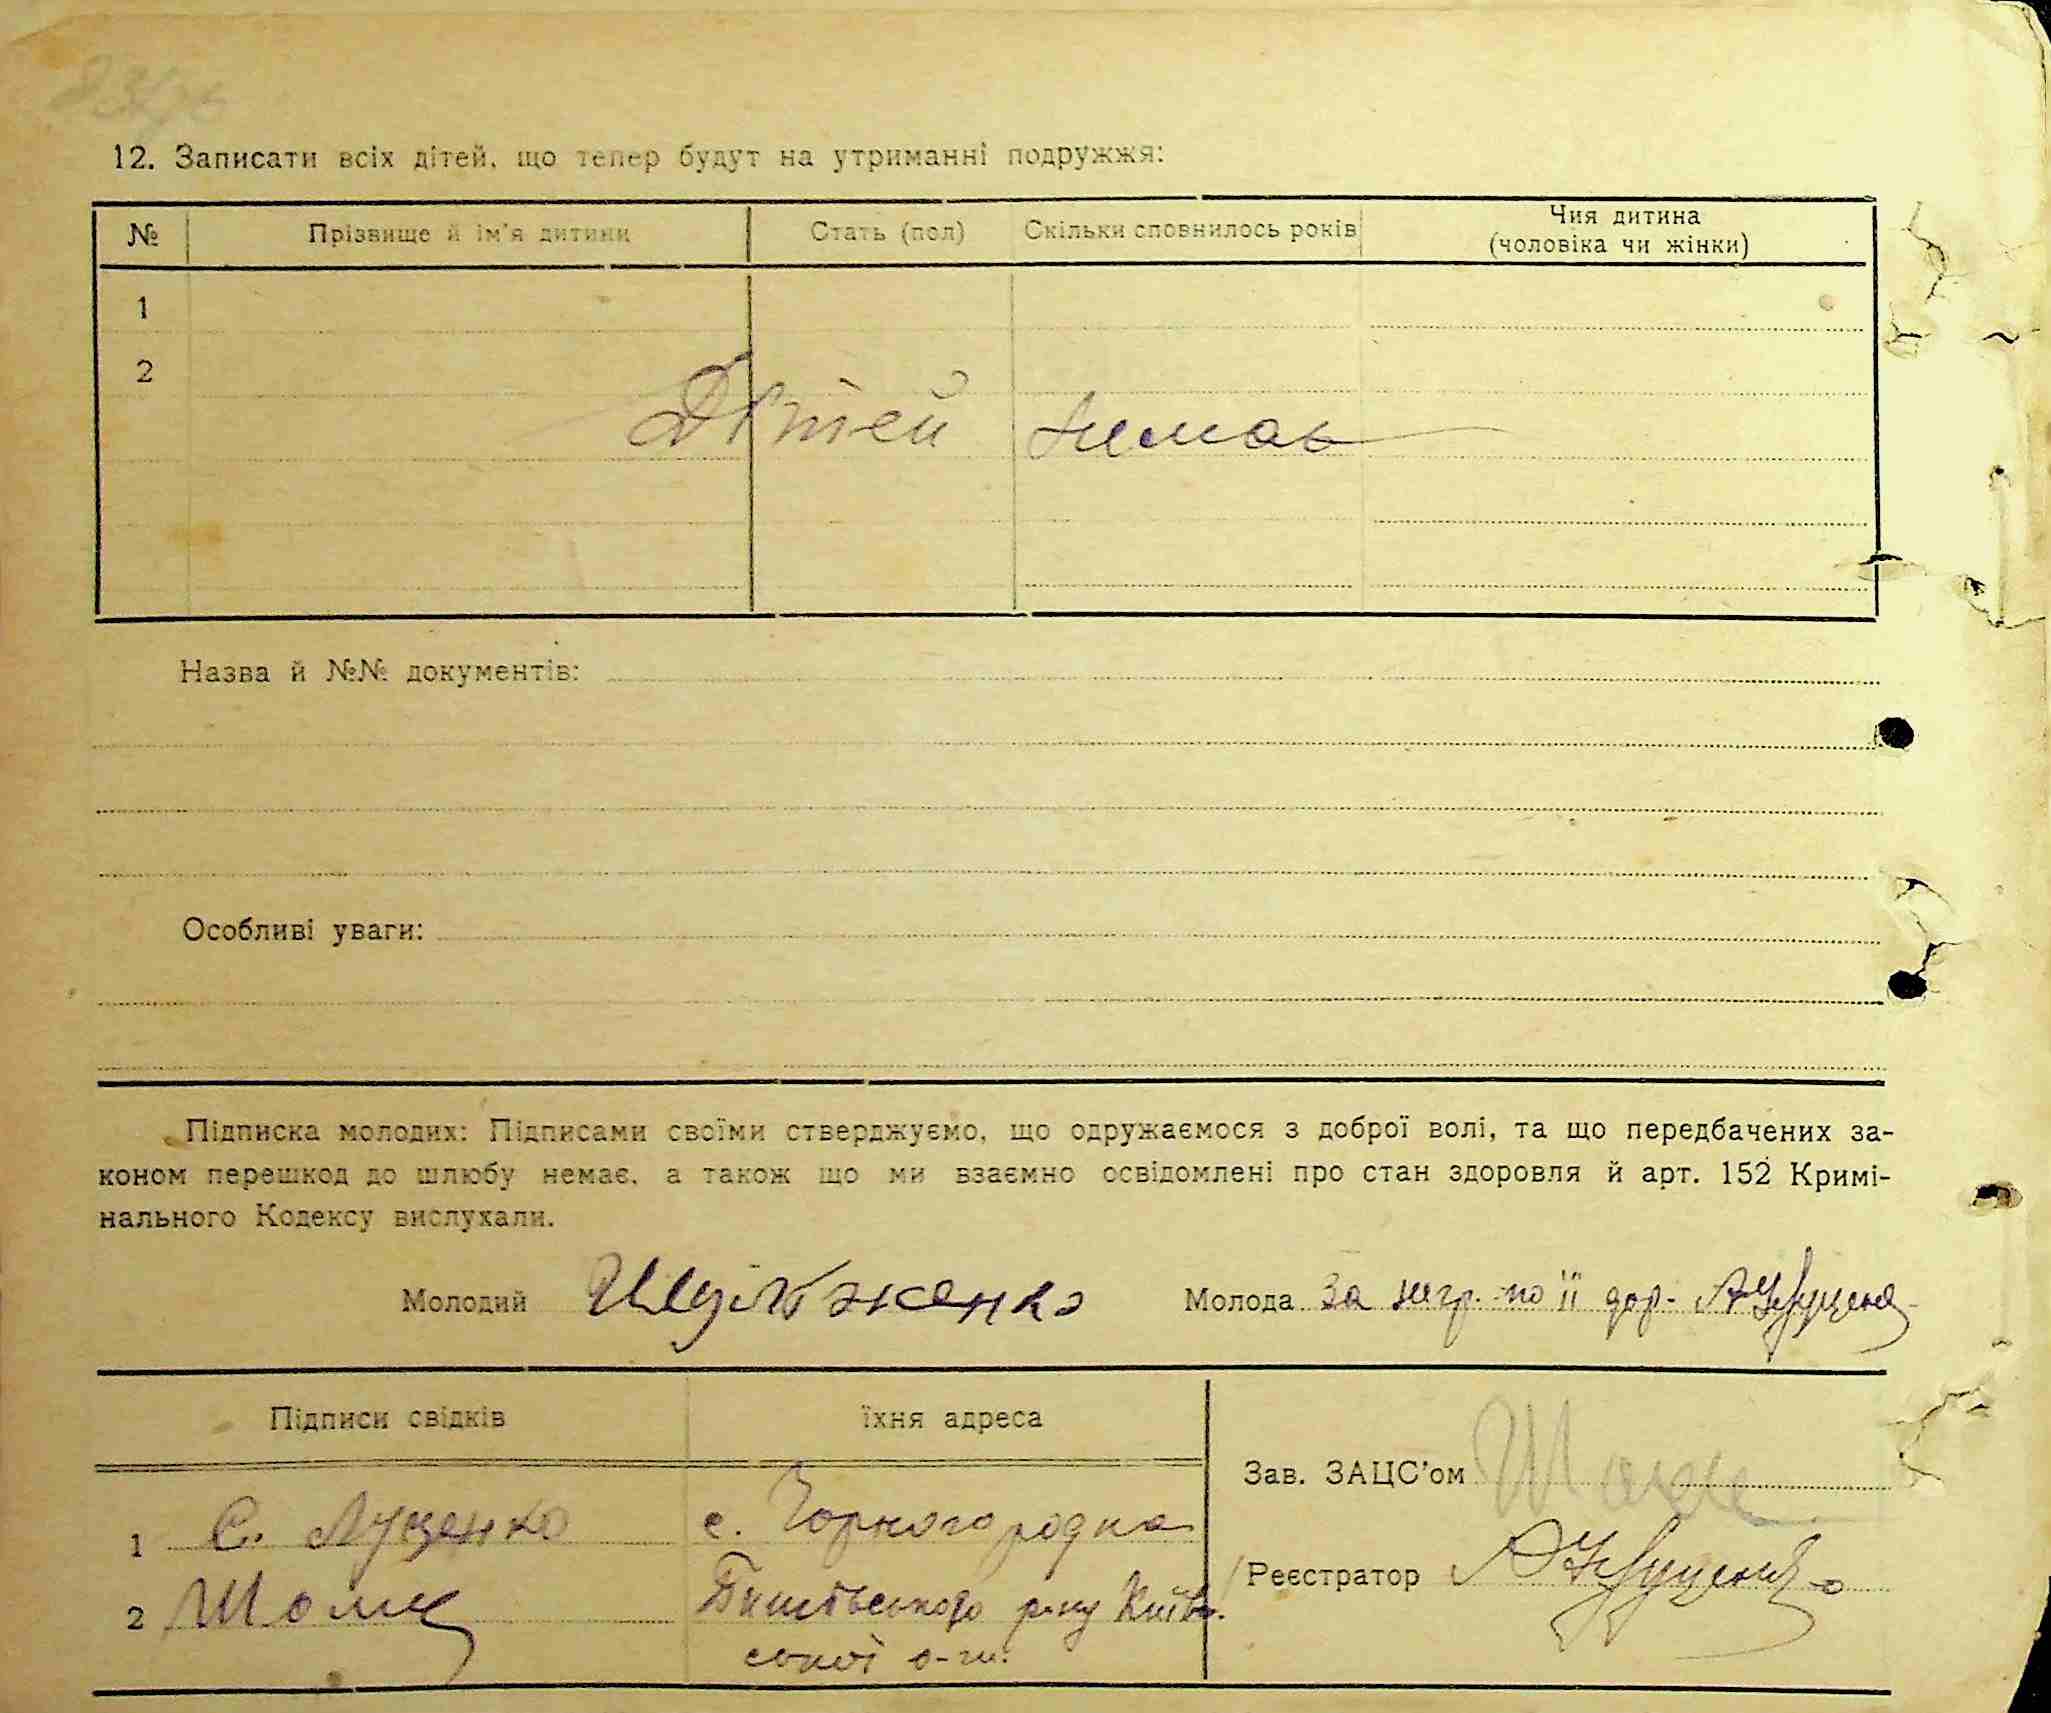 12. Записати всіх дітей, що тепер будут на утриманні подружжя:
№ Прізвище й ім'я дитини Стать (пол) Скільки сповнилось років Чия дитина (чоловіка чи жінки)
1
2
Дітей немає
Назва й №№ документів:
Особливі уваги:
Підписка молодих: Підписами своїми стверджуємо, що одружаємося з доброї волі, та що передбачених за-
коном перешкод до шлюбу немає, а також що ми взаємно освідомлені про стан здоровля й арт. 152 Кримі-
нального Кодексу вислухали.
Молодий Шульженко Молода за негр. по її дор.
Підписи свідків їхня адреса
Зав. ЗАЦС'ом
1 С. Луценко с. Чорногородка
Реєстратор
2 Бишівського р-ну Київ
ської о-ти.